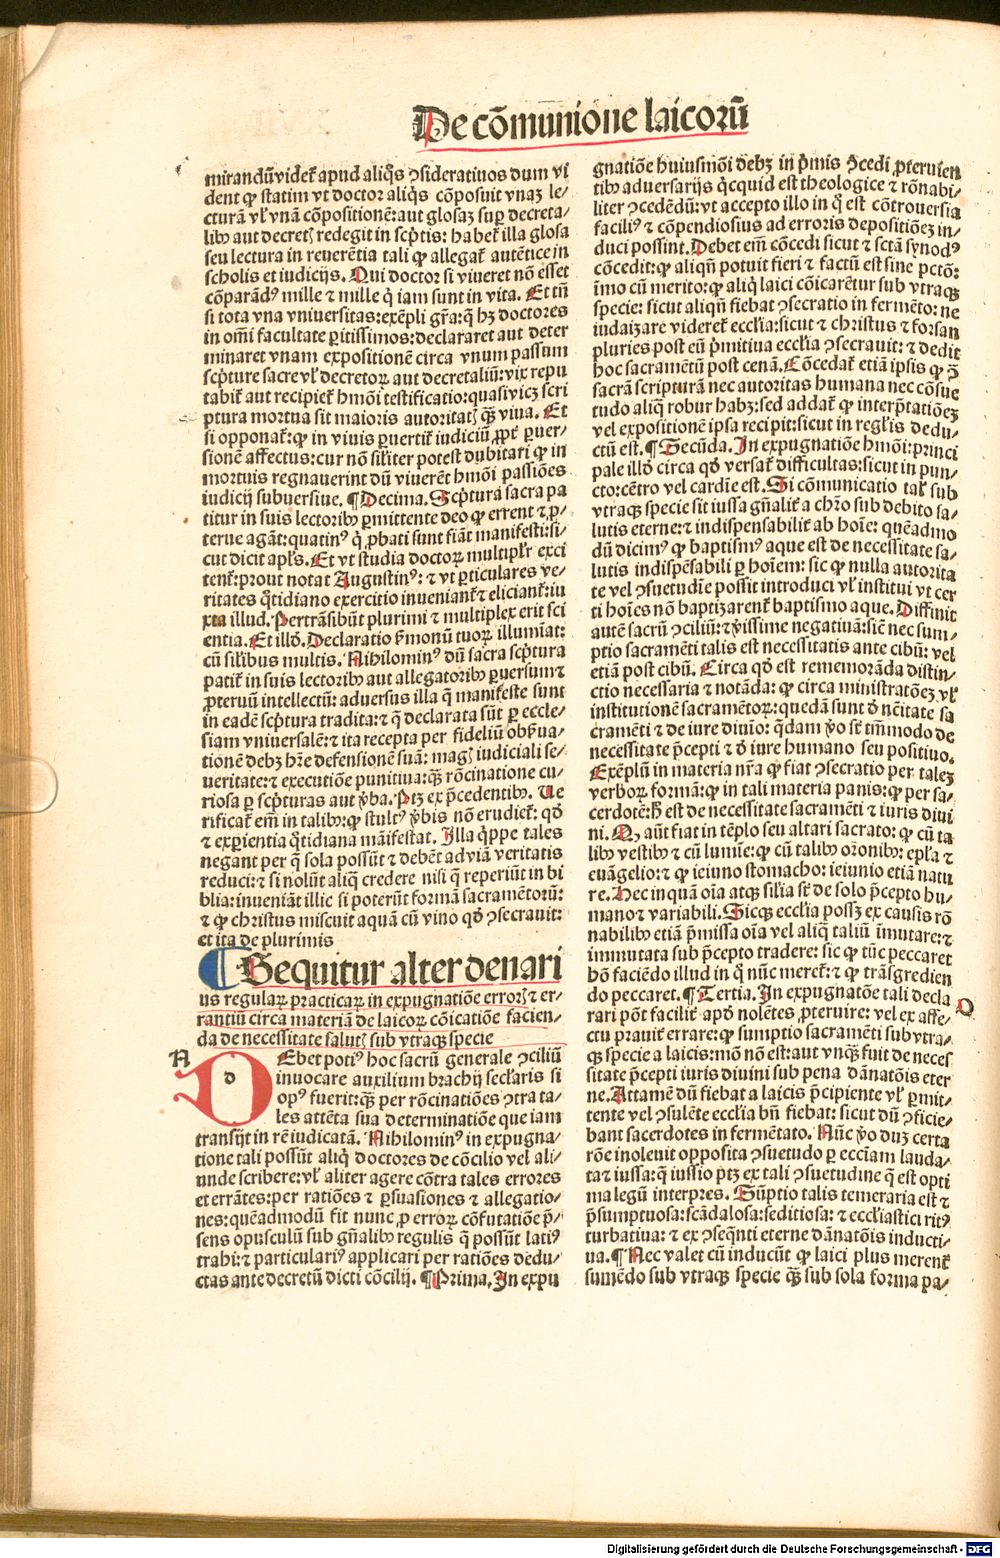 De cōmunione laicorū
mirandū videt̄ apud aliq̄s ꝯsideratiuos dum vi
dent ꝙ statim vt doctor aliq̄s cōposuit vnaꝫ le/
cturā vl̓ vnā cōpositionē: aut glosaꝫ suꝑ decreta/
libꝰ aut decretꝭ redegit in scp̄tis: habet̄ illa glosa
seu lectura in reuerētia tali ꝙ allegat̄ autētice in
scholis et iudicijs. Qui doctor si viueret nō esset
cōparādꝰ mille ⁊ mille q̄ iam sunt in vita. Et tn̄
si tota vna vniuersitas: exēpli gr̄a: q̄ hꝫ doctores
in om̄i facultate ꝑitissimos: declararet aut deter
minaret vnam expositionē circa vnum passum
scp̄ture sacre vl̓ decretoꝝ aut decretaliū: vix repu
tabit̄ aut recipiet̄ hmōi testificatio: quasi vicꝫ scri
ptura mortua sit maioris autoritatꝭ q̄ꝫ viua. Et
si opponat̄: ꝙ in viuis ꝑuertit̄ iudiciū ꝓpt̄ ꝑuer/
sionē affectus: cur nō sil̓iter potest dubitari ꝙ in
mortuis regnauerint dū viuerēt hmōi passiōes
iudicij subuersiue. ¶ Decima. Scp̄tura sacra pa
titur in suis lectoribꝰ ꝑmittente deo ꝙ errent ⁊ ꝓ/
terue agāt: quatinꝰ q̄ ꝓbati sunt fiāt manifesti: si/
cut dicit apl̓s. Et vt studia doctoꝝ multipl̓r exci
tent̄: prout notat Augustinꝰ: ⁊ vt ꝑticulares ve/
ritates q̄tidiano exercitio inueniant̄ ⁊ eliciant̄: iu
xta illud. Pertrāsibūt plurimi ⁊ multiplex erit sci
entia. Et illḋ. Declaratio ẜmonū tuoꝝ illumīat:
cū silibus multis. Nihilominꝰ dū sacra scp̄tura
patit̄ in suis lectoribꝰ aut allegatoribꝰ ꝑuersum ⁊
ꝓteruū intellectū: aduersus illa q̄ manifeste sunt
in eadē scp̄tura tradita: ⁊ q̄ declarata sūt ꝑ eccle/
siam vniuersalē: ⁊ ita recepta per fideliū obẜua/
tionē debꝫ hr̄e defensionē suā: magꝭ iudiciali se/
ueritate: ⁊ executiōe punitiua: q̄ꝫ rōcinatione cu/
riosa ꝑ scp̄turas aut v̄ba. Ptꝫ ex p̄cedentibꝰ. Ue
rificat̄ em̄ in talibꝰ: ꝙ stultꝰ v̄bis nō erudiet̄: qḋ
⁊ experientia q̄tidiana māifestat. Illa q̄ppe tales
negant per q̄ sola possūt ⁊ debēt ad viā veritatis
reduci: ⁊ si nolūt aliq̄ credere nisi q̄ reperiūt in bi
blia: inueniāt illic si poterūt formā sacramētorū:
⁊ ꝙ christus miscuit aquā cū vino qḋ ꝯsecrauit:
et ita de plurimis
¶ Sequitur alter denari
us regularꝝ practicaꝝ in expugnatiōe errorꝭ ⁊ er/
rantiū circa materiā de laicoꝝ cōicatiōe facien/
da de necessitate salutꝭ sub vtraqꝫ specie
A
d
Debet potiꝰ hoc sacrū generale ꝯciliū
inuocare auxilium brachij secl̓aris si
opꝰ fuerit: q̄ꝫ per rōcinatiōes ꝯtra ta/
les attēta sua determinatiōe que iam
transijt in rē iudicatā. Nihilominꝰ in expugna/
tione tali possūt aliq̄ doctores de cōcilio vel ali/
unde scribere: vl̓ aliter agere cōtra tales errores
et errātes: per ratiōes ⁊ ꝑsuasiones ⁊ allegatio/
nes: quēadmodū fit nunc ꝓ erroꝝ cōfutatiōe p̄/
sens opusculū sub gn̄alibꝰ regulis q̄ possūt latiꝰ
trahi: ⁊ particulariꝰ applicari per ratiōes dedu/
ctas ante decretū dicti cōcilij. ¶ Prima. In expu
gnatiōe huiusmōi debꝫ in p̄mis ꝯcedi ꝓteruien
tibꝰ aduersarijs q̄cquid est theologice ⁊ rōnabi/
liter ꝯcedēdū: vt accepto illo in q̄ est cōtrouersia
faciliꝰ ⁊ cōpendiosius ad erroris depositiōeꝫ in/
duci possint. Debet em̄ cōcedi sicut ⁊ sctā synodꝰ
cōcedit: ꝙ aliqn̄ potuit fieri ⁊ factū est sine pctō:
īmo cū merito: ꝙ aliq̄ laici cōicarētur sub vtraqꝫ
specie: sicut aliqn̄ fiebat ꝯsecratio in fermēto: ne
iudaizare videret̄ eccl̓ia: sicut ⁊ christus ⁊ forsan
pluries post eū p̄mitiua eccl̓ia ꝯsecrauit: ⁊ dedit
hoc sacramētū post cenā. Cōcedat̄ etiā ipsis ꝙ ꝯ̄
sacrā scripturā nec autoritas humana nec cōsue
tudo aliq̄ robur habꝫ: sed addat̄ ꝙ interp̄tatiōeꝫ
vel expositionē ipsa recipit: sicut in regl̓is dedu/
ctū est. ¶ Secūda. In expugnatiōe hmōi: princi
pale illḋ circa qḋ versat̄ difficultas: sicut in pun/
cto: cētro vel cardīe est. Si cōmunicatio tal̓ sub
vtraqꝫ specie sit iussa gn̄alit̄ a chr̄o sub debito sa/
lutis eterne: ⁊ indispensabilit̄ ab hoīe: quēadmo
dū dicimꝰ ꝙ baptismꝰ aque est de necessitate sa/
lutis indispēsabili ꝑ hoīem: sic ꝙ nulla autorita
te vel ꝯsuetudīe possit introduci vl̓ institui vt cer
ti hoīes nō baptizarent̄ baptismo aque. Diffinit
autē sacrū ꝯciliū: ⁊ v̄issime negatiuā: siē nec sum/
ptio sacramēti talis est necessitatis ante cibū: vel
etiā post cibū. Circa qḋ est rememorāda distin/
ctio necessaria ⁊ notāda: ꝙ circa ministratōeꝫ vl̓
institutionē sacramētoꝝ: quedā sunt ḋ nc̄itate sa
cramēti ⁊ de iure diuīo: q̄dam v̄o st̄ tm̄modo de
necessitate p̄cepti ⁊ ḋ iure humano seu positiuo.
Exēplū in materia nr̄a ꝙ fiat ꝯsecratio per taleꝫ
verboꝝ formā: ꝙ in tali materia panis: ꝙ per sa/
cerdotē: h̄ est de necessitate sacramēti ⁊ iuris diui
ni. Qꝫ aūt fiat in tēplo seu altari sacrato: ꝙ cū ta
libꝰ vestibꝰ ⁊ cū lumīe: ꝙ cū talibꝰ orōnibꝰ: epl̓a ⁊
euāgelio: ⁊ ꝙ ieiuno stomacho: ieiunio etiā natu
re. Hec inquā oīa atqꝫ silīa st̄ de solo p̄cepto hu/
mano ⁊ variabili. Sicqꝫ eccl̓ia possꝫ ex causis rō
nabilibꝰ etiā p̄missa oīa vel aliq̄ taliū īmutare: ⁊
immutata sub p̄cepto tradere: sic ꝙ tūc peccaret
hō faciēdo illud in q̄ nūc meret̄: ⁊ ꝙ trāsgredien
do peccaret. ¶ Tertia. In expugnatōe tali decla
rari pōt facilit̄ apḋ nolētes ꝓteruire: vel ex affe/
ctu prauit̄ errare: ꝙ sumptio sacramēti sub vtra/
qꝫ specie a laicis: mō nō est: aut vnqꝫ fuit de neces
sitate p̄cepti iuris diuini sub pena dānatōis eter
ne. Attamē dū fiebat a laicis p̄cipiente vl̓ ꝑmit/
tente vel ꝯsulēte eccl̓ia bn̄ fiebat: sicut dū ꝯficie/
bant sacerdotes in fermētato. Nūc v̄o duꝫ certa
rōe inoleuit opposita ꝯsuetudo ꝑ ecciam lauda/
ta ⁊ iussa: q̄ iussio ptꝫ ex tali ꝯsuetudine q̄ est opti
ma legū interpres. Sūptio talis temeraria est ⁊
p̄sumptuosa: scādalosa: seditiosa: ⁊ eccl̓iastici ritꝰ
turbatiua: ⁊ ex ꝯseq̄nti eterne dānatōis inducti/
ua. ¶ Nec valet cū inducūt ꝙ laici plus merent̄
sumēdo sub vtraqꝫ specie q̄ꝫ sub sola forma pa/
Digitalisierung gefördert durch die Deutsche Forschungsgemeinschaft - DFG